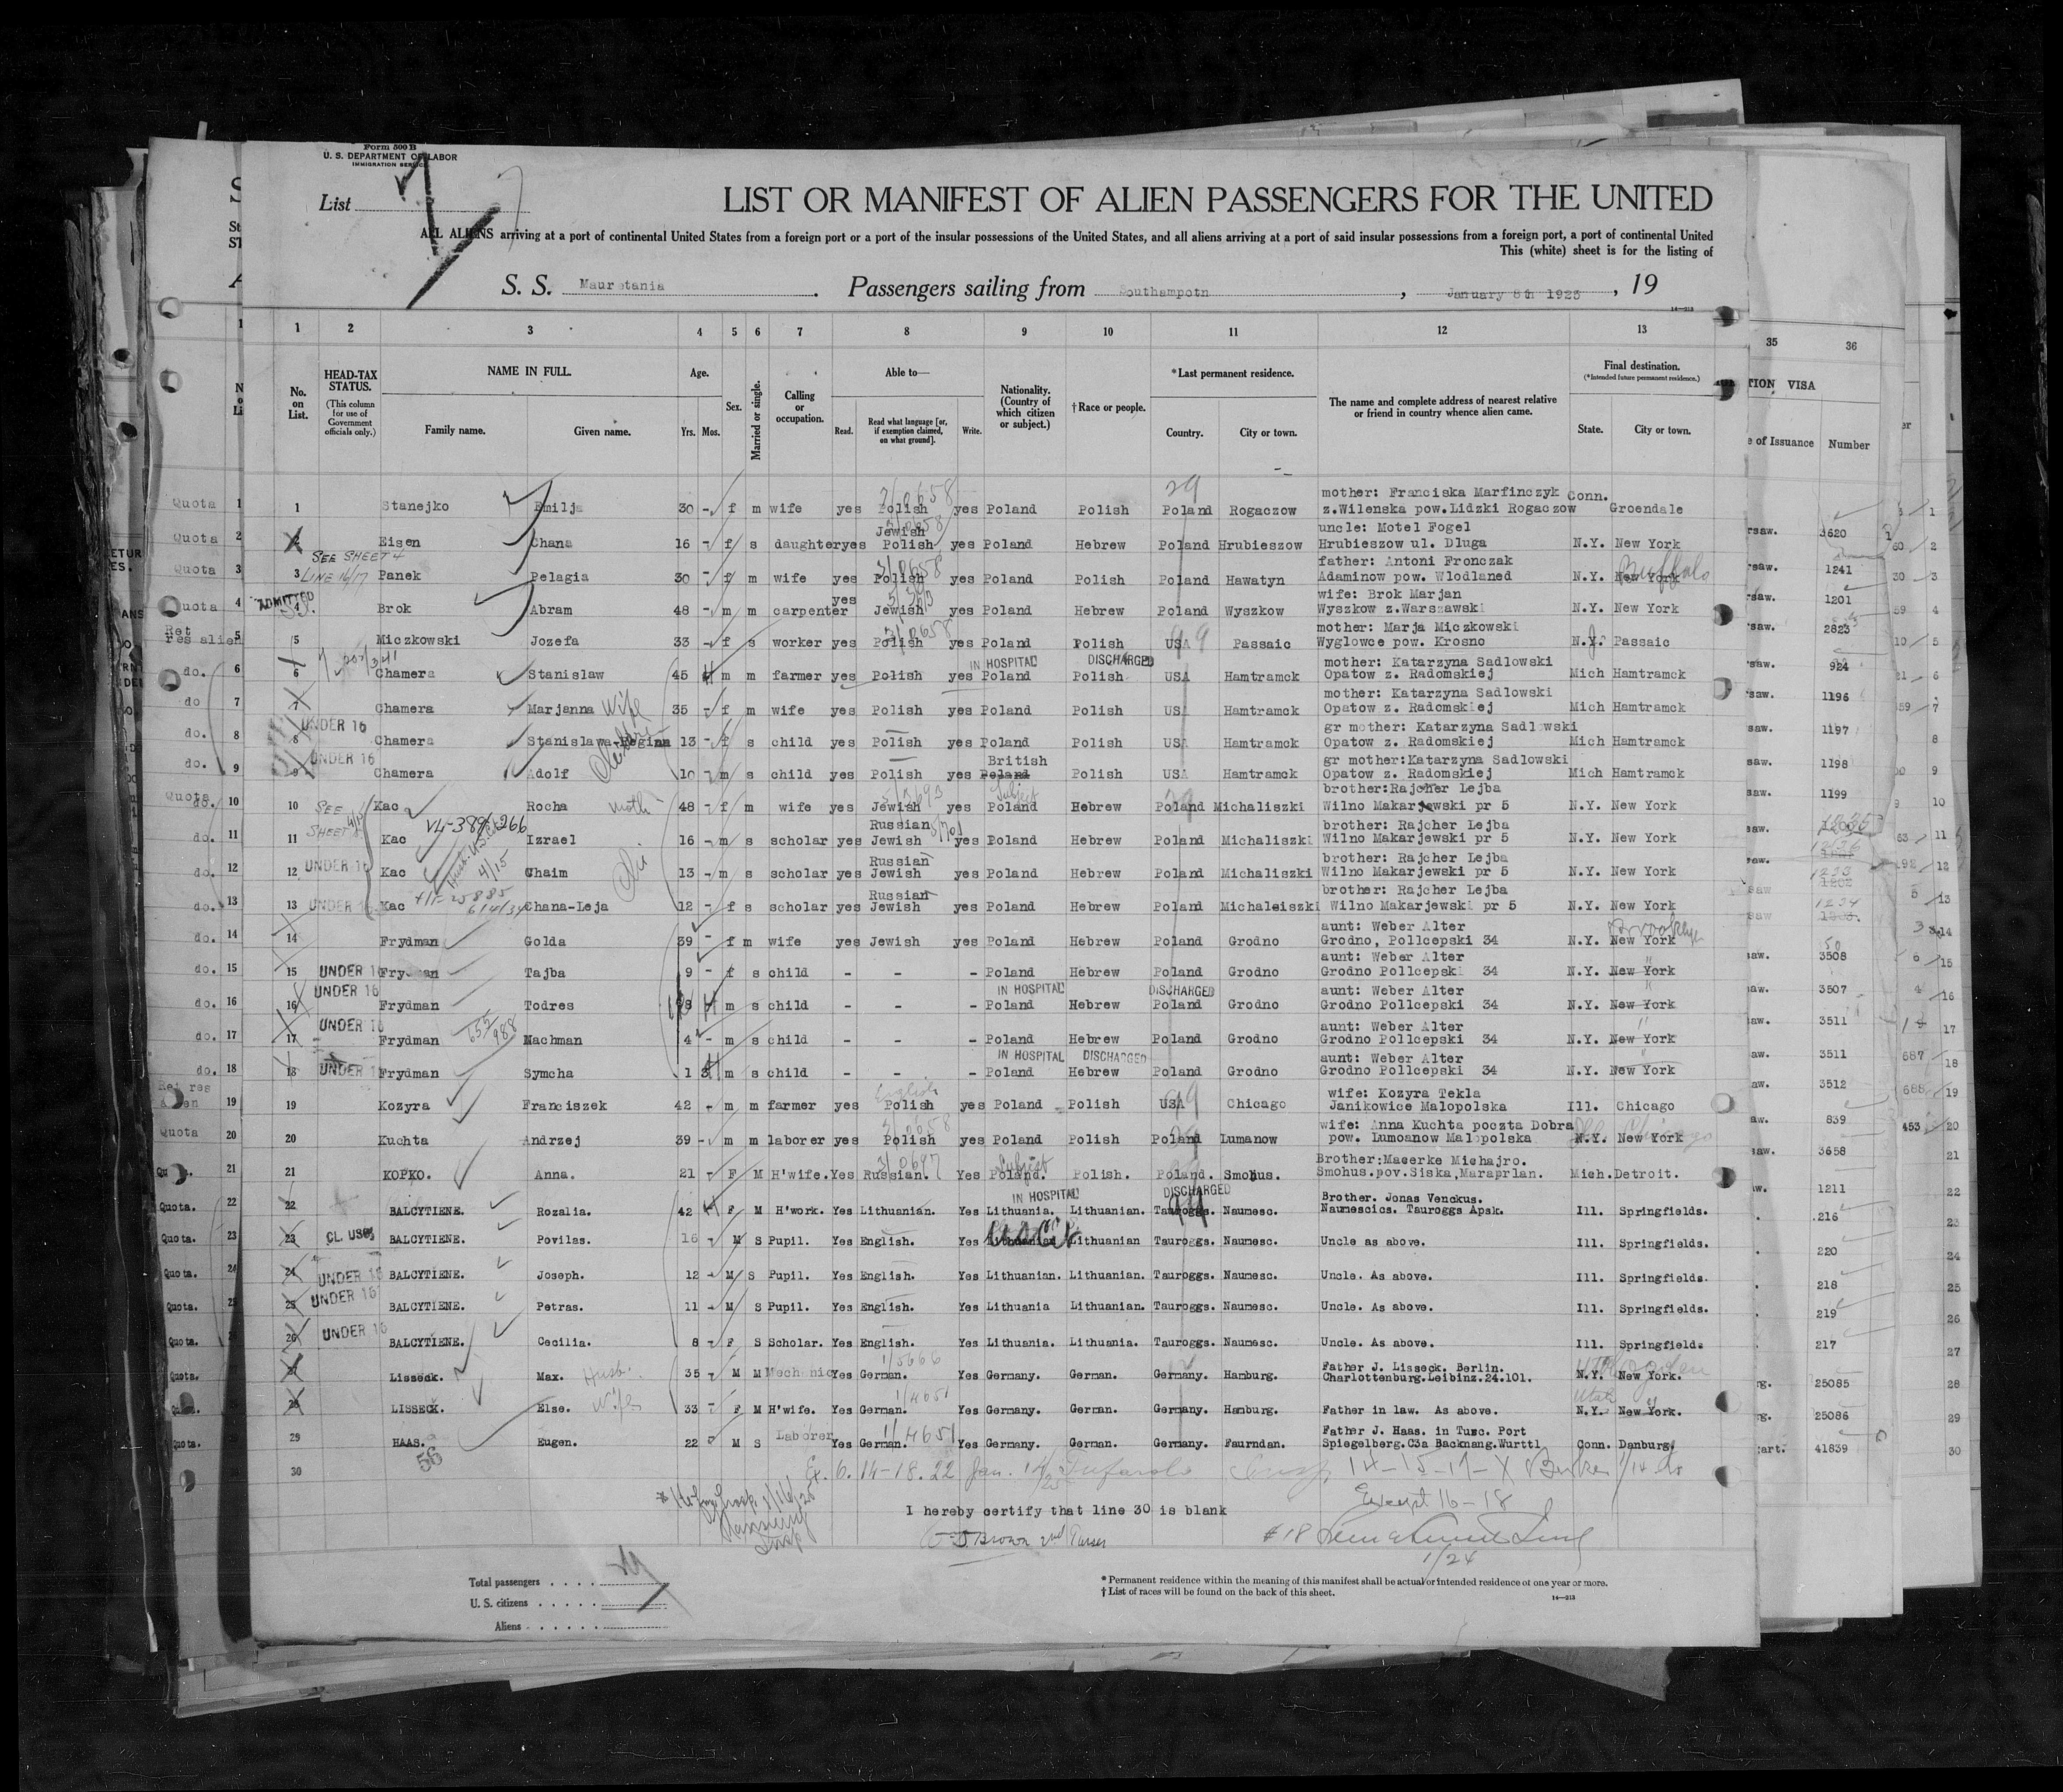 Form 500 B
U. S. DEPARTMENT OF LABOR
IMMIGRATION SERVICE
List 7
LIST OR MANIFEST OF ALIEN PASSENGERS FOR THE UNITED
ALL ALIENS arriving at a port of continental United States from a foreign port or a port of the insular possessions of the United States, and all aliens arriving at a port of said insular possessions from a foreign port, a port of continental United
This (white) sheet is for the listing of
S. S. Mauretania. Passengers sailing from Southampotn, January 8th 1925, 19
14—213
1 2 3 4 5 6 7 8 9 10 11 12 13 35 36
No. on List.
HEAD-TAX STATUS.
(This column for use of Government officials only.)
NAME IN FULL.
Family name. Given name.
Age.
Yrs. Mos.
Sex.
Married or single.
Calling or occupation.
Able to—
Read. Read what language [or, if exemption claimed, on what ground]. Write.
Nationality. (Country of which citizen or subject.)
† Race or people.
*Last permanent residence.
Country. City or town.
The name and complete address of nearest relative or friend in country whence alien came.
Final destination.
(*Intended future permanent residence.)
State. City or town.
TION VISA
e of Issuance Number
Quota 1 1 Stanejko Emilja 30 - f m wife yes Polish yes Poland Polish Poland Rogaczow mother: Franciska Marfinczyk z.Wilenska pow.Lidzki Rogaczow Conn. Groendale
Quota 2 2 Eisen Chana 16 - f s daughter yes Jewish Polish yes Poland Hebrew Poland Hrubieszow uncle: Motel Fogel Hrubieszow ul. Dluga N.Y. New York rsaw. 3620
SEE SHEET 4 LINE 16/17
Quota 3 3 Panek Pelagia 30 - f m wife yes Polish yes Poland Polish Poland Hawatyn father: Antoni Fronczak Adaminow pow. Wlodlaned N.Y. New York Buffalo rsaw. 1241
ADMITTED
Quota 4 4 Brok Abram 48 - m m carpenter yes Jewish yes Poland Hebrew Poland Wyszkow wife: Brok Marjan Wyszkow z.Warszawski N.Y. New York rsaw. 1201
Ret res alien 5 5 Miczkowski Jozefa 33 - f s worker yes Polish yes Poland Polish USA Passaic mother: Marja Miczkowski Wyglowce pow. Krosno N.Y. Passaic rsaw. 2823
IN HOSPITAL DISCHARGED
do. 6 6 Chamera Stanislaw 45 m m farmer yes Polish yes Poland Polish USA Hamtramck mother: Katarzyna Sadlowski Opatow z. Radomskiej Mich Hamtramck rsaw. 924
do 7 7 Chamera Marjanna wife 35 - f m wife yes Polish yes Poland Polish USA Hamtramck mother: Katarzyna Sadlowski Opatow z. Radomskiej Mich Hamtramck rsaw. 1196
do. 8 8 UNDER 16 Chamera Stanislawa-Regina 13 - f s child yes Polish yes Poland Polish USA Hamtramck gr mother: Katarzyna Sadlowski Opatow z. Radomskiej Mich Hamtramck rsaw. 1197
do. 9 9 UNDER 16 Chamera Adolf 10 - m s child yes Polish yes British Poland Polish USA Hamtramck gr mother:Katarzyna Sadlowski Opatow z. Radomskiej Mich Hamtramck rsaw. 1198
Quota do. 10 10 Kac Rocha 48 - f m wife yes Jewish yes Poland Hebrew Poland Michaliszki brother:Rajcher Lejba Wilno Makarjewski pr 5 N.Y. New York rsaw. 1199
SEE SHEET
do. 11 11 Kac Izrael 16 - m s scholar yes Russian Jewish yes Poland Hebrew Poland Michaliszki brother: Rajcher Lejba Wilno Makarjewski pr 5 N.Y. New York saw.
do. 12 12 UNDER 16 Kac Chaim 13 - m s scholar yes Russian Jewish yes Poland Hebrew Poland Michaliszki brother: Rajcher Lejba Wilno Makarjewski pr 5 N.Y. New York saw.
do. 13 13 UNDER 16 Kac Chana-Leja 12 - f s scholar yes Russian Jewish yes Poland Hebrew Poland Michaleiszki brother: Rajcher Lejba Wilno Makarjewski pr 5 N.Y. New York saw
do. 14 14 Frydman Golda 39 - f m wife yes Jewish yes Poland Hebrew Poland Grodno aunt: Weber Alter Grodno, Pollcepski 34 N.Y. New York Brooklyn saw
do. 15 15 UNDER 16 Frydman Tajba 9 - f s child - - - Poland Hebrew Poland Grodno aunt: Weber Alter Grodno Pollcepski 34 N.Y. New York aw. 3508
IN HOSPITAL DISCHARGED
do. 16 16 UNDER 16 Frydman Todres 8 m s child - - - Poland Hebrew Poland Grodno aunt: Weber Alter Grodno Pollcepski 34 N.Y. New York aw. 3507
do. 17 17 UNDER 16 Frydman Nachman 4 - m s child - - - Poland Hebrew Poland Grodno aunt: Weber Alter Grodno Pollcepski 34 N.Y. New York aw. 3511
IN HOSPITAL DISCHARGED
do. 18 18 UNDER 16 Frydman Symcha 1 m s child - - - Poland Hebrew Poland Grodno aunt: Weber Alter Grodno Pollcepski 34 N.Y. New York aw. 3511
Ret res Alien 19 19 Kozyra Franciszek 42 - m m farmer yes English Polish yes Poland Polish USA Chicago wife: Kozyra Tekla Janikowice Malopolska Ill. Chicago aw. 3512
Quota 20 20 Kuchta Andrzej 39 - m m laborer yes Polish yes Poland Polish Poland Lumanow wife: Anna Kuchta poczta Dobra pow. Lumoanow Malopolska N.Y. New York Chicago aw. 839
21 21 KOPKO. Anna. 21 - F M H'wife. Yes Russian. Yes Poland. Polish. Poland. Smohus. Brother;Macerke Michajro. Smohus.pov.Siska,Maraprlan. Mich. Detroit. saw. 3658
IN HOSPITAL DISCHARGED
Quota. 22 22 BALCYTIENE. Rozalia. 42 F M H'work. Yes Lithuanian. Yes Lithuania. Lithuanian. Tauroggs. Naumesc. Brother. Jonas Venckus. Naumescics. Tauroggs Apsk. Ill. Springfields. w. 1211
Quota. 23 23 BALCYTIENE. Povilas. 16 - M S Pupil. Yes English. Yes Lithuanian Lithuanian Tauroggs. Naumesc. Uncle as above. Ill. Springfields. 216
Quota. 24 24 UNDER 16 BALCYTIENE. Joseph. 12 - M S Pupil. Yes English. Yes Lithuanian. Lithuanian. Tauroggs. Naumesc. Uncle. As above. Ill. Springfields. 220
Quota. 25 25 UNDER 16 BALCYTIENE. Petras. 11 - M S Pupil. Yes English. Yes Lithuania Lithuanian. Tauroggs. Naumesc. Uncle. As above. Ill. Springfields. 218
Quota. 26 UNDER 16 BALCYTIENE. Cecilia. 8 - F S Scholar. Yes English. Yes Lithuania. Lithuania. Tauroggs. Naumesc. Uncle. As above. Ill. Springfields 219
217
Quota. 27 Lisseck. Max. Husb. 35 - M M Mechanic Yes German. Yes Germany. German. Germany. Hamburg. Father J. Lisseck. Berlin. Charlottenburg.Leibinz.24.101. N.Y. New York. Ogden
rg. 25085
28 LISSECK. Else. Wife 33 - F M H'wife. Yes German. Yes Germany. German. Germany. Hamburg. Father in law. As above. N.Y. New York. Utah
rg. 25086
Quota. 29 HAAS. Eugen. 22 M S Laborer Yes German. Yes Germany. German. Germany. Faurndan. Father J. Haas. in Tusc. Port Spiegelberg.C3a Backnang.Wurttl Conn. Danburg.
art. 41839
30
56
I hereby certify that line 30 is blank
Brown 2nd Purser
Except 16-18
1/24
Total passengers . . . . .
U. S. citizens . . . . .
Aliens . . . . . .
* Permanent residence within the meaning of this manifest shall be actual or intended residence of one year or more.
† List of races will be found on the back of this sheet.
14—213